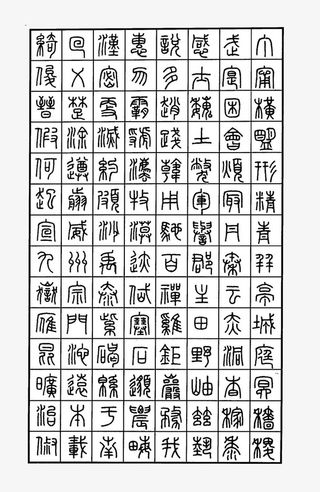 綺回漢惠說感武丁
俊乂密勿多士寔甯
晉楚更霸趙魏困橫
假涂滅虢踐土會盟
何遵約法韓弊煩刑
起翦頗牧用軍最精
宣威沙漠馳譽丹青
九州禹跡百郡秦并
嶽宗泰岱禪主云亭
雁門紫塞雞田赤城
昆池碣石鉅野洞庭
曠遠緜邈巖岫杳冥
治本于農務茲稼穡
俶載南畝我藝黍稷